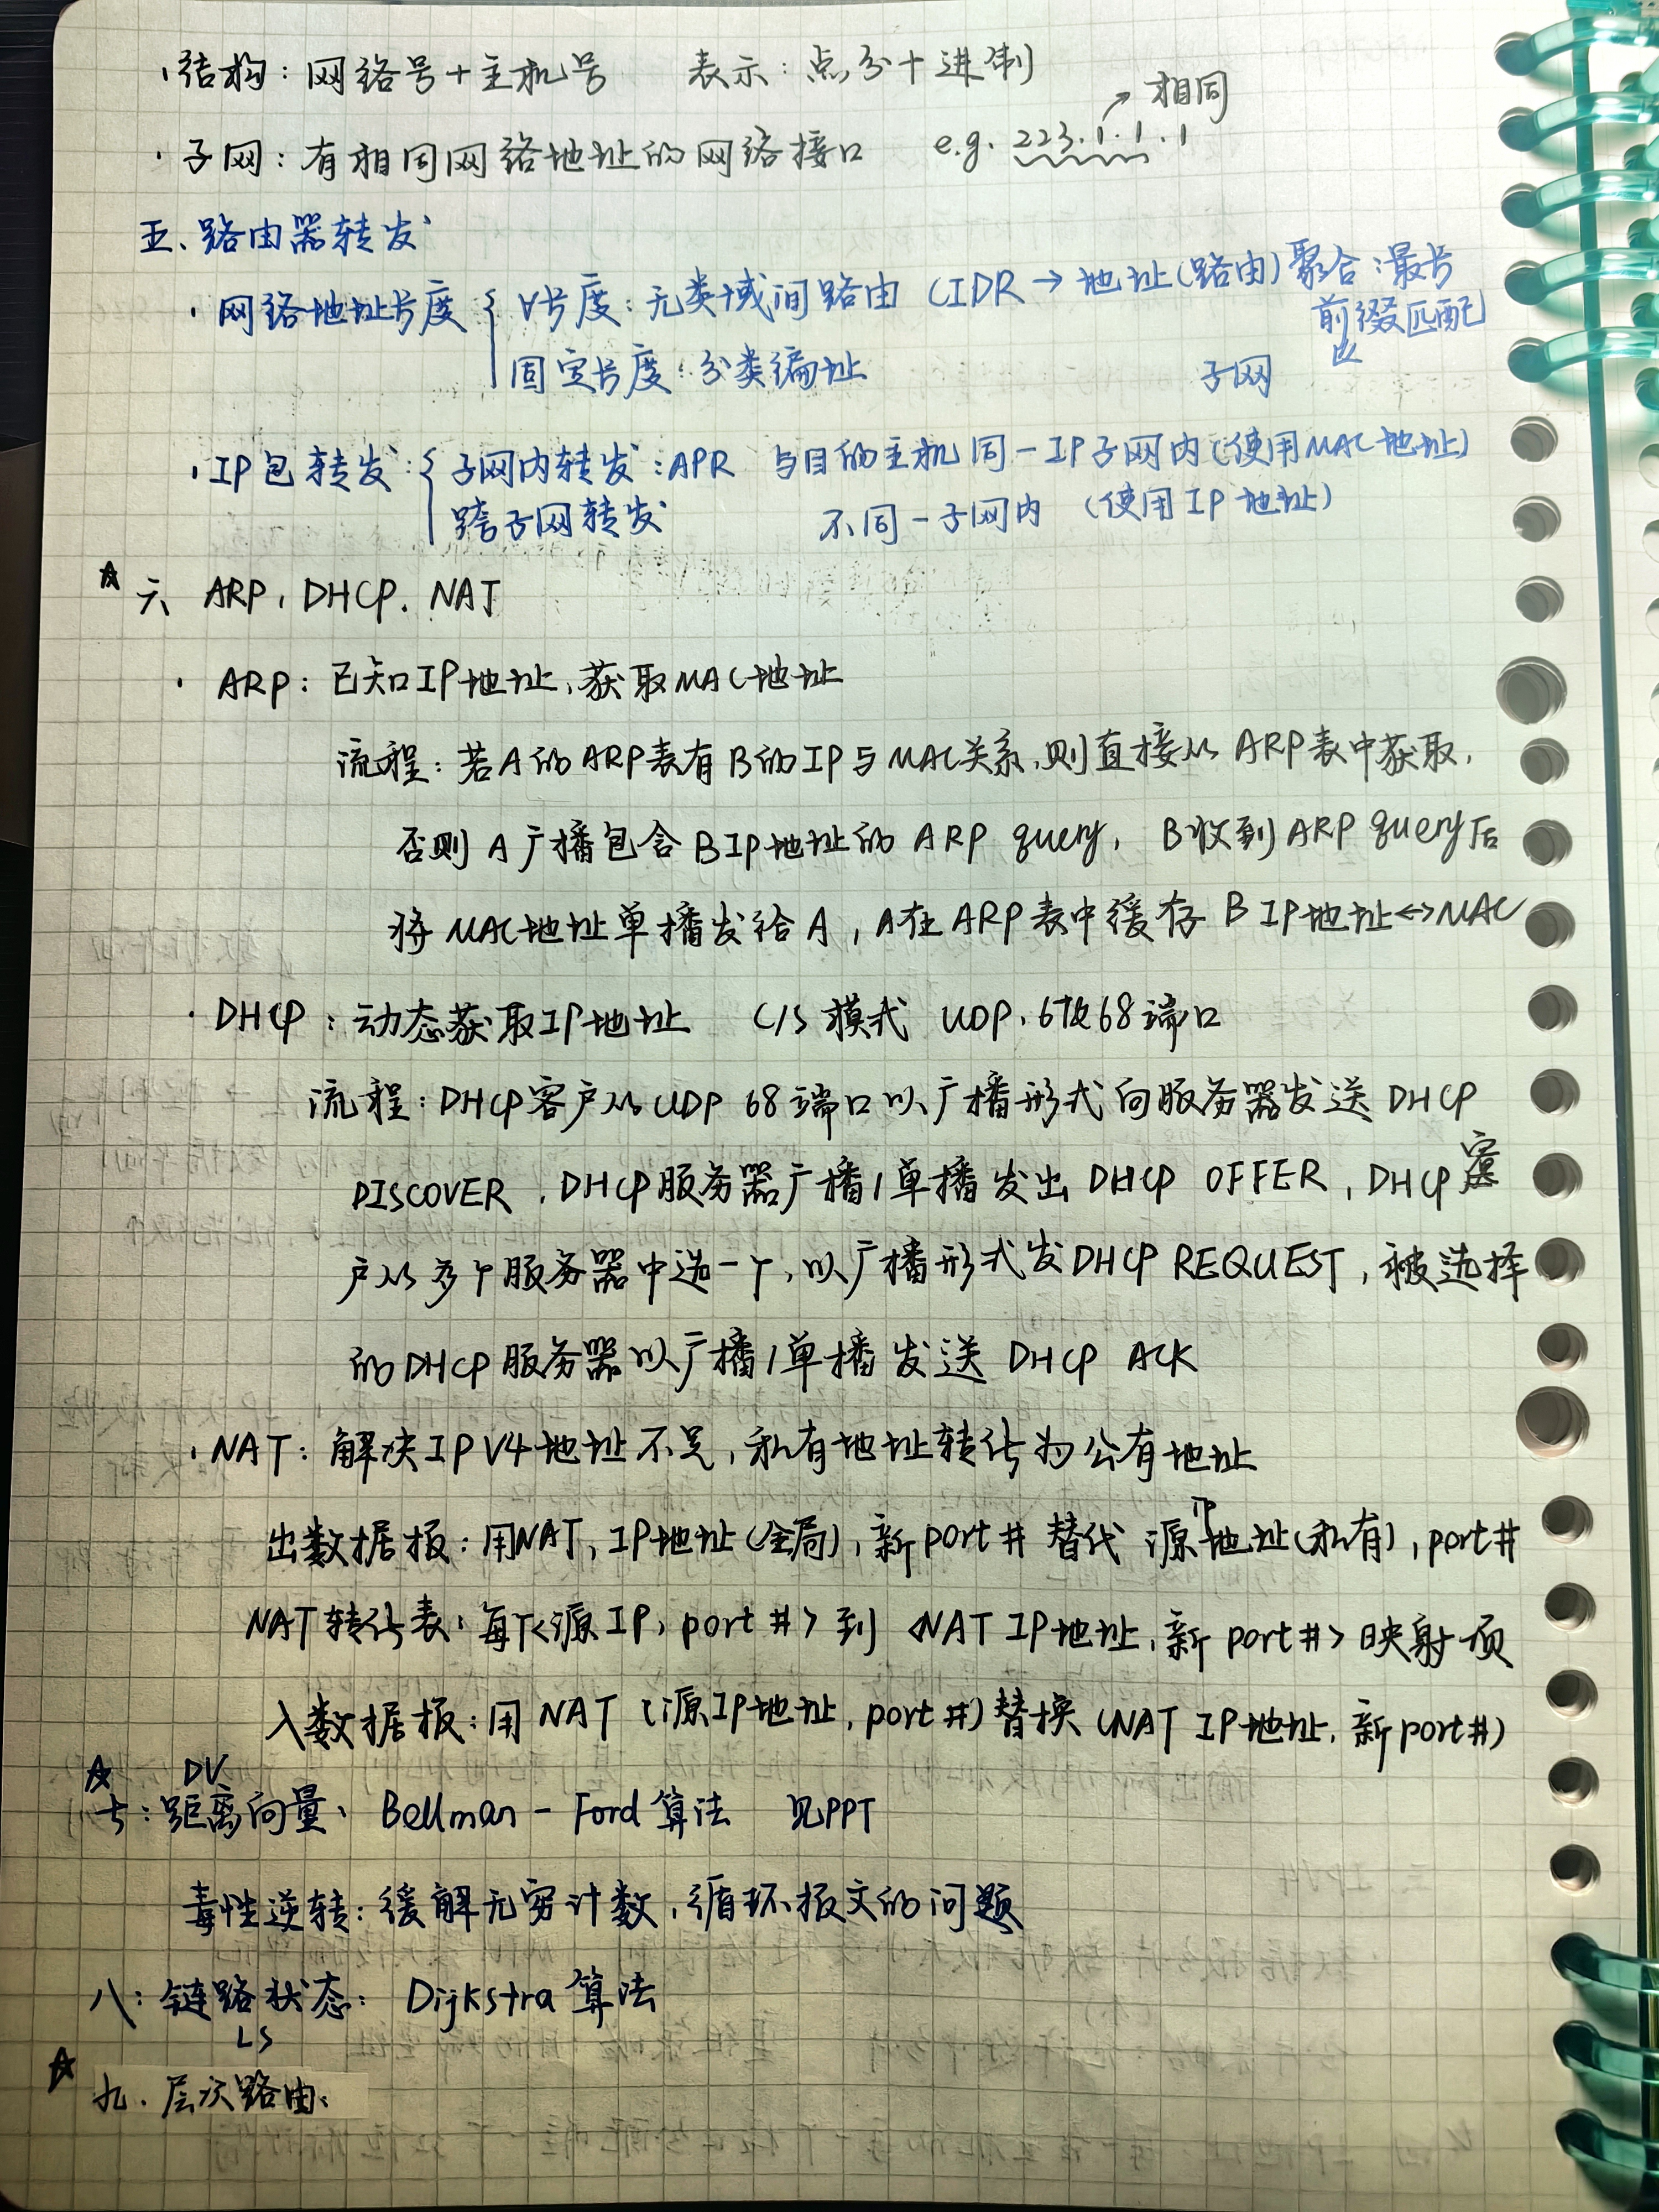 ·结构：网络号+主机号 表示：点分十进制
·子网：有相同网络地址的网络接口 e.g. 223.1.1.1 ↗相同
五、路由器转发
·网络地址长度 { ∀长度：无类域间路由 CIDR → 地址(路由)聚合：最长
前缀匹配
固定长度：分类编址 子网
·IP包转发：{ 子网内转发：APR 与目的主机同一IP子网内(使用MAC地址)
跨子网转发 不同一子网内 (使用IP地址)
☆六、ARP、DHCP、NAT
·ARP：已知IP地址，获取MAC地址
流程：若A的ARP表有B的IP与MAC关系，则直接从ARP表中获取，
否则A广播包含BIP地址的ARP query，B收到ARP query后
将MAC地址单播发给A，A在ARP表中缓存B IP地址↔MAC
·DHCP：动态获取IP地址 C/S模式 UDP、67及68端口
流程：DHCP客户从UDP 68端口以广播形式向服务器发送DHCP
DISCOVER，DHCP服务器广播/单播发出DHCP OFFER，DHCP客
户从多个服务器中选一个，以广播形式发DHCP REQUEST，被选择
的DHCP服务器以广播/单播发送DHCP ACK
·NAT：解决IPV4地址不足，私有地址转化为公有地址
出数据报：用NAT, IP地址(全局)，新port# 替代 源IP地址(私有)，port#
NAT转化表：每个<源IP，port#>到<NAT IP地址，新port#>映射项
入数据报：用NAT (源IP地址，port#)替换(NAT IP地址，新port#)
☆ DV
七：距离向量、Bellman-Ford算法 见PPT
毒性逆转：缓解无穷计数，循环报文的问题
八：链路状态：Dijkstra算法
LS
☆九、层次路由：